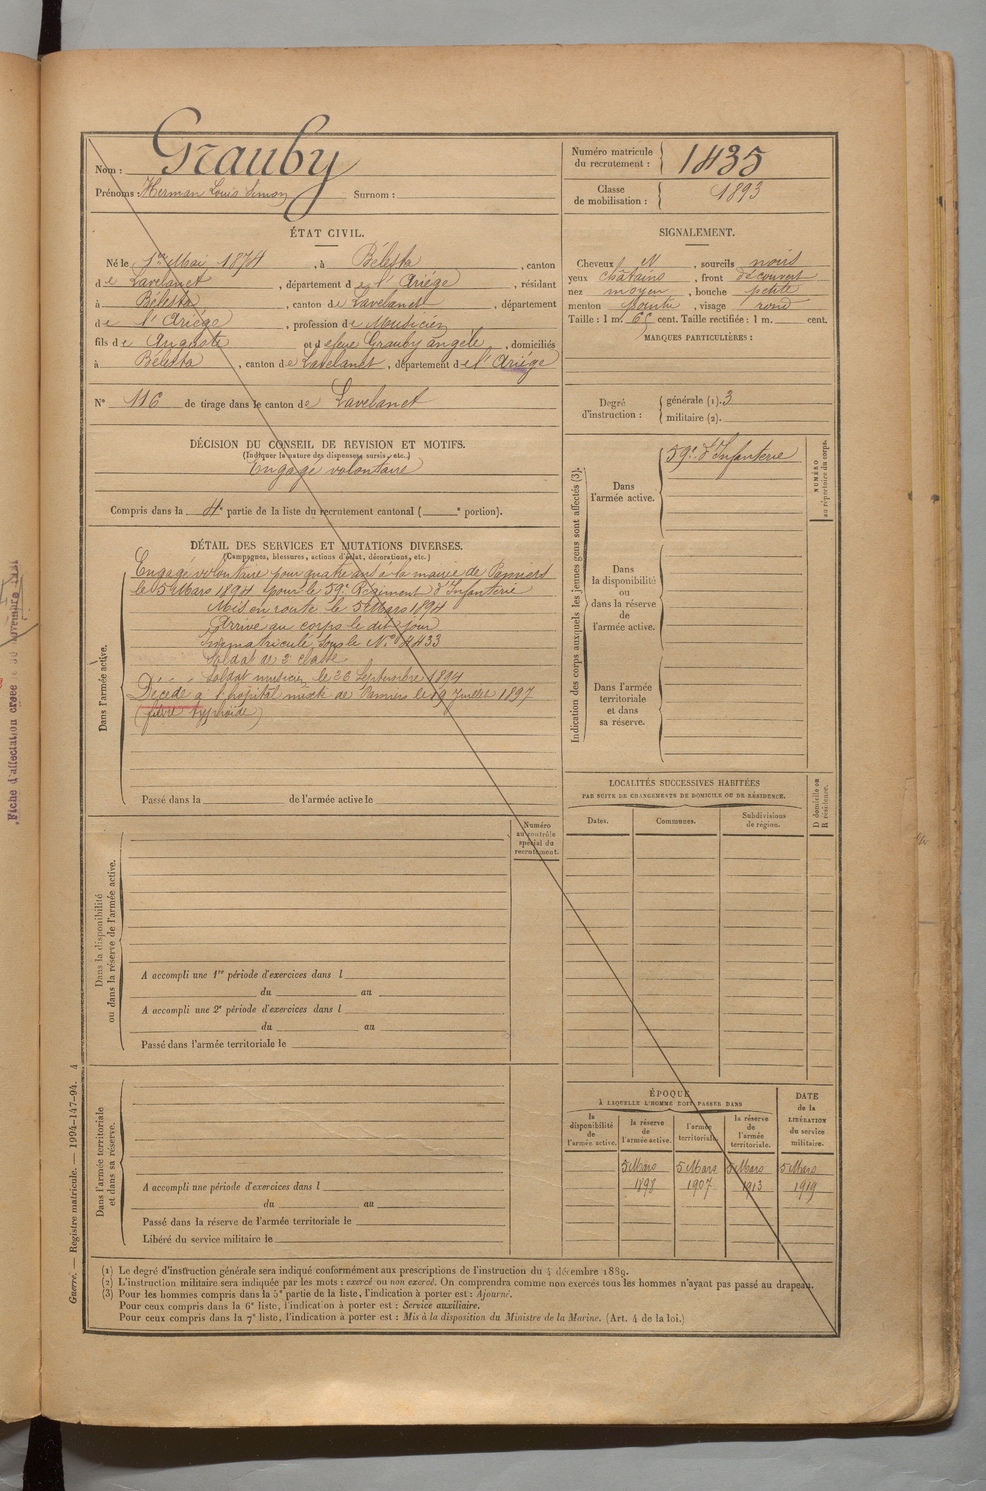 Nom : Grauby
Prénoms : Herman Louis Simon Surnom :
Numéro matricule du recrutement : 1435
Classe de mobilisation : 1893
ÉTAT CIVIL.
Né le 1er Mai 1874, à Bélesta, canton
de Lavelanet, département de l'Ariége, résidant
à Bélesta, canton de Lavelanet, département
de l'Ariége, profession de Musicien
fils de Auguste et de feue Grauby Angèle, domiciliés
à Bélesta, canton de Lavelanet, département de l'Ariége
N° 116 de tirage dans le canton de Lavelanet
DÉCISION DU CONSEIL DE REVISION ET MOTIFS.
(Indiquer la nature des dispenses, sursis, etc.)
Engagé volontaire
Compris dans la 4e partie de la liste du recrutement cantonal ( e portion).
DÉTAIL DES SERVICES ET MUTATIONS DIVERSES.
(Campagnes, blessures, actions d'éclat, décorations, etc.)
Dans l'armée active.
Engagé volontaire pour quatre ans à la mairie de Pamiers
le 5 Mars 1894 pour le 59e Régiment d'Infanterie
Mis en route le 5 Mars 1894
Arrivé au corps le dit jour
Immatriculé sous le N° 4433
Soldat de 2e classe
Soldat musicien le 26 Septembre 1894
Décédé à l'hopital mixte de Pamiers le 19 Juillet 1897
(fièvre typhoïde)
Passé dans la de l'armée active le
Numéro au contrôle spécial du recrutement.
Dans la disponibilité ou dans la réserve de l'armée active.
A accompli une 1re période d'exercices dans l
du au
A accompli une 2e période d'exercices dans l
du au
Passé dans l'armée territoriale le
Dans l'armée territoriale et dans sa réserve.
A accompli une période d'exercices dans l
du au
Passé dans la réserve de l'armée territoriale le
Libéré du service militaire le
SIGNALEMENT.
Cheveux N, sourcils noirs
yeux châtains, front découvert
nez moyen, bouche petite
menton pointu, visage rond
Taille : 1 m. 65 cent. Taille rectifiée : 1 m. cent.
MARQUES PARTICULIÈRES :
Degré d'instruction :
générale (1). 3
militaire (2).
Indication des corps auxquels les jeunes gens sont affectés (3).
NUMÉRO au répertoire du corps.
Dans l'armée active. 59e d'Infanterie
Dans la disponibilité ou dans la réserve de l'armée active.
Dans l'armée territoriale et dans sa réserve.
LOCALITÉS SUCCESSIVES HABITÉES
PAR SUITE DE CHANGEMENTS DE DOMICILE OU DE RÉSIDENCE.
D domicile ou R résidence.
Dates. Communes. Subdivisions de région.
ÉPOQUE
À LAQUELLE L'HOMME DOIT PASSER DANS
la disponibilité de l'armée active.
la réserve de l'armée active.
l'armée territoriale.
la réserve de l'armée territoriale.
DATE de la LIBÉRATION du service militaire.
5 Mars 5 Mars 5 Mars 5 Mars
1898 1907 1913 1919
(1) Le degré d'instruction générale sera indiqué conformément aux prescriptions de l'instruction du 4 décembre 1889.
(2) L'instruction militaire sera indiquée par les mots : exercé ou non exercé. On comprendra comme non exercés tous les hommes n'ayant pas passé au drapeau.
(3) Pour les hommes compris dans la 5e partie de la liste, l'indication à porter est : Ajourné.
Pour ceux compris dans la 6e liste, l'indication à porter est : Service auxiliaire.
Pour ceux compris dans la 7e liste, l'indication à porter est : Mis à la disposition du Ministre de la Marine. (Art. 4 de la loi.)
Guerre. — Registre matricule. — 1994-147-94. 4
Fiche d'affectation créée